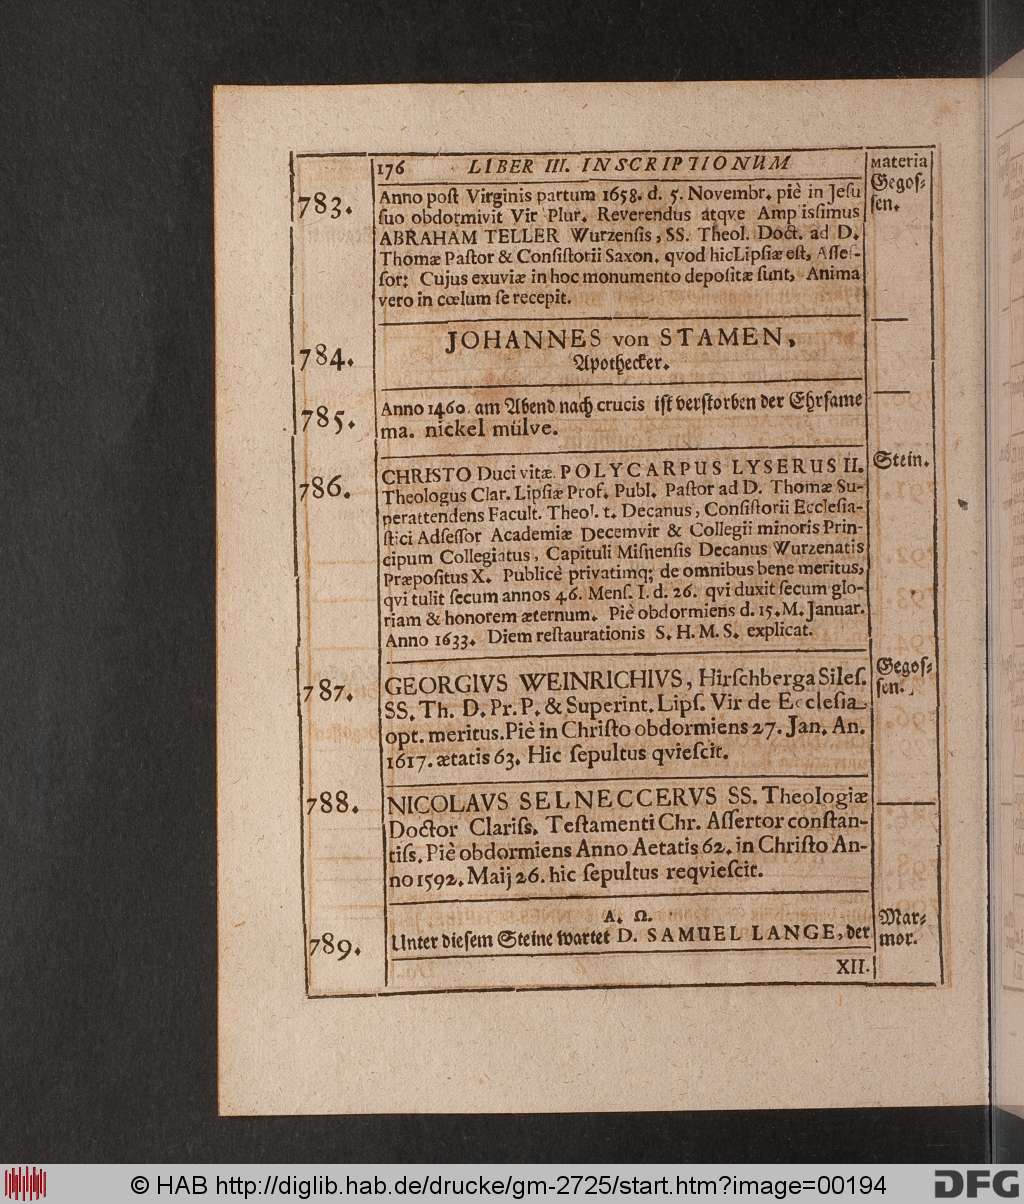 176 LIBER III. INSCRIPTIONUM Materia
783. Anno poſt Virginis partum 1658. d. 5. Novembr. piè in Jeſu Gegoſ⸗
ſuo obdormivit Vir Plur. Reverendus atqve Amp iſſimus ſen.
ABRAHAM TELLER Wurzenſis, SS. Theol. Doct. ad D.
Thomæ Paſtor & Conſiſtorii Saxon. qvod hic Lipſiæ eſt, Aſſeſ-
ſor; Cujus exuviæ in hoc monumento depoſitæ ſunt, Anima
vero in cœlum ſe recepit.
784. JOHANNES von STAMEN,
Apothecker.
785. Anno 1460. am Abend nach crucis iſt verſtorben der Ehrſame
ma. nickel mülve.
786. CHRISTO Duci vitæ. POLYCARPUS LYSERUS II. Stein.
Theologus Clar. Lipſiæ Prof. Publ. Paſtor ad D. Thomæ Su-
perattendens Facult. Theol. t. Decanus, Conſiſtorii Eccleſia-
ſtici Adſeſſor Academiæ Decemvir & Collegii minoris Prin-
cipum Collegiatus, Capituli Miſnenſis Decanus Wurzenatis
Præpoſitus X. Publicè privatimq; de omnibus bene meritus,
qvi tulit ſecum annos 46. Menſ. I. d. 26. qvi duxit ſecum glo-
riam & honorem æternum. Piè obdormiens d. 15. M. Januar.
Anno 1633. Diem reſtaurationis S. H. M. S. explicat.
787. GEORGIVS WEINRICHIVS, Hirſchberga Sileſ. Gegoſ⸗
SS. Th. D. Pr. P. & Superint. Lipſ. Vir de Eccleſia ſen.
opt. meritus. Piè in Chriſto obdormiens 27. Jan. An.
1617. ætatis 63. Hic ſepultus qvieſcit.
788. NICOLAVS SELNECCERVS SS. Theologiæ
Doctor Clariſs. Teſtamenti Chr. Aſſertor conſtan-
tiſs. Piè obdormiens Anno Aetatis 62. in Chriſto An-
no 1592. Maij 26. hic ſepultus reqvieſcit.
A. Ω. Mar⸗
789. Unter dieſem Steine wartet D. SAMUEL LANGE, der mor.
XII.
© HAB http://diglib.hab.de/drucke/gm-2725/start.htm?image=00194 DFG